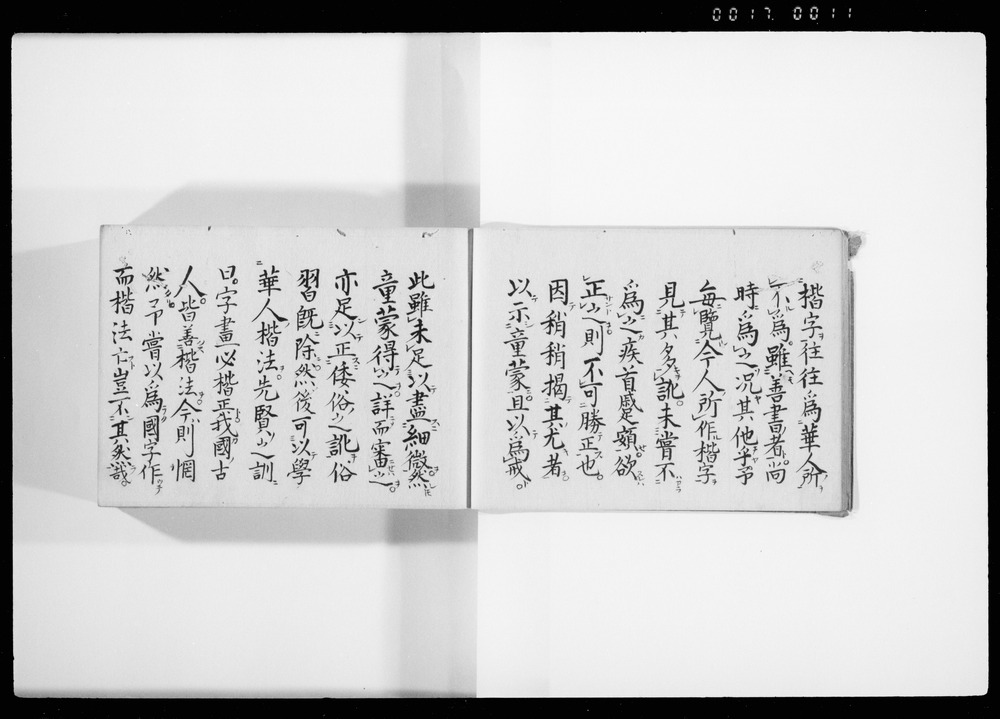 0017 0011
楷字往往爲華人所
不爲雖善書者尚
時爲之况其他乎予
每覽今人所作楷字
見其多訛未嘗不
爲之疾首蹙頞欲
正之則不可勝正也
因稍稍揭其尤者
以示童蒙且以爲戒
此雖未足以盡細微然
童蒙得之詳而審之
亦足以正倭俗之訛俗
習既除然後可以學
華人楷法先賢之訓
曰字畫必楷正我國古
人皆善楷法今則惘
然予嘗以爲國字作
而楷法亡豈不其矣哉